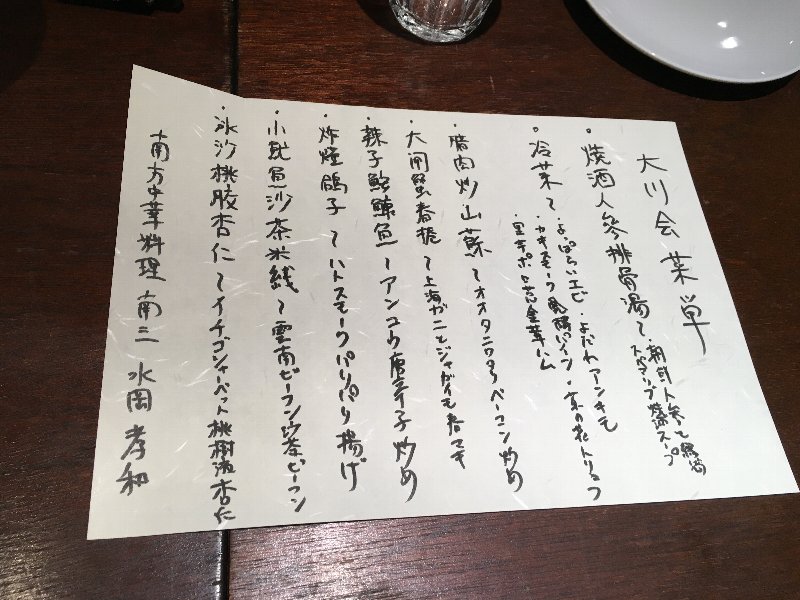 大川会菜単
・焼酒人參排骨湯〜・朝引人参と緑酒
スペアリブ 蒸スープ
・冷菜〜・よっぱらいエビ・よだれアンキモ
・カキスモーク発酵パイン・菜の花トリュフ
・里芋ポロ芯金華ハム
・腊肉炒山蘇〜オオタニワタリベーコン炒め
・大閘蟹春捲〜上海ガニとジャガイモ春マキ
・辣子鮟鱇魚〜アンコウ唐辛子炒め
・炸煙鴿子〜ハトスモークパリパリ揚げ
・小魷魚沙茶米線〜雲南ビーフン沙茶ビーフン
・氷沙桃胶杏仁〜イチゴシャーベット桃樹液杏仁
南方中華料理 南三 水岡孝和